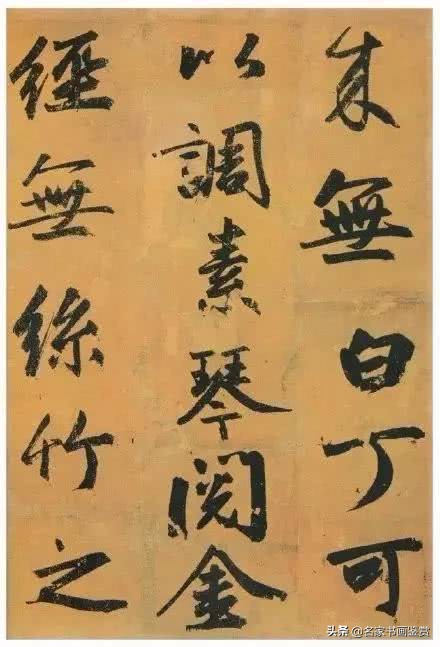 来無白丁可
以調素琴閱金
經無絲竹之
头条 @名家书画鉴赏